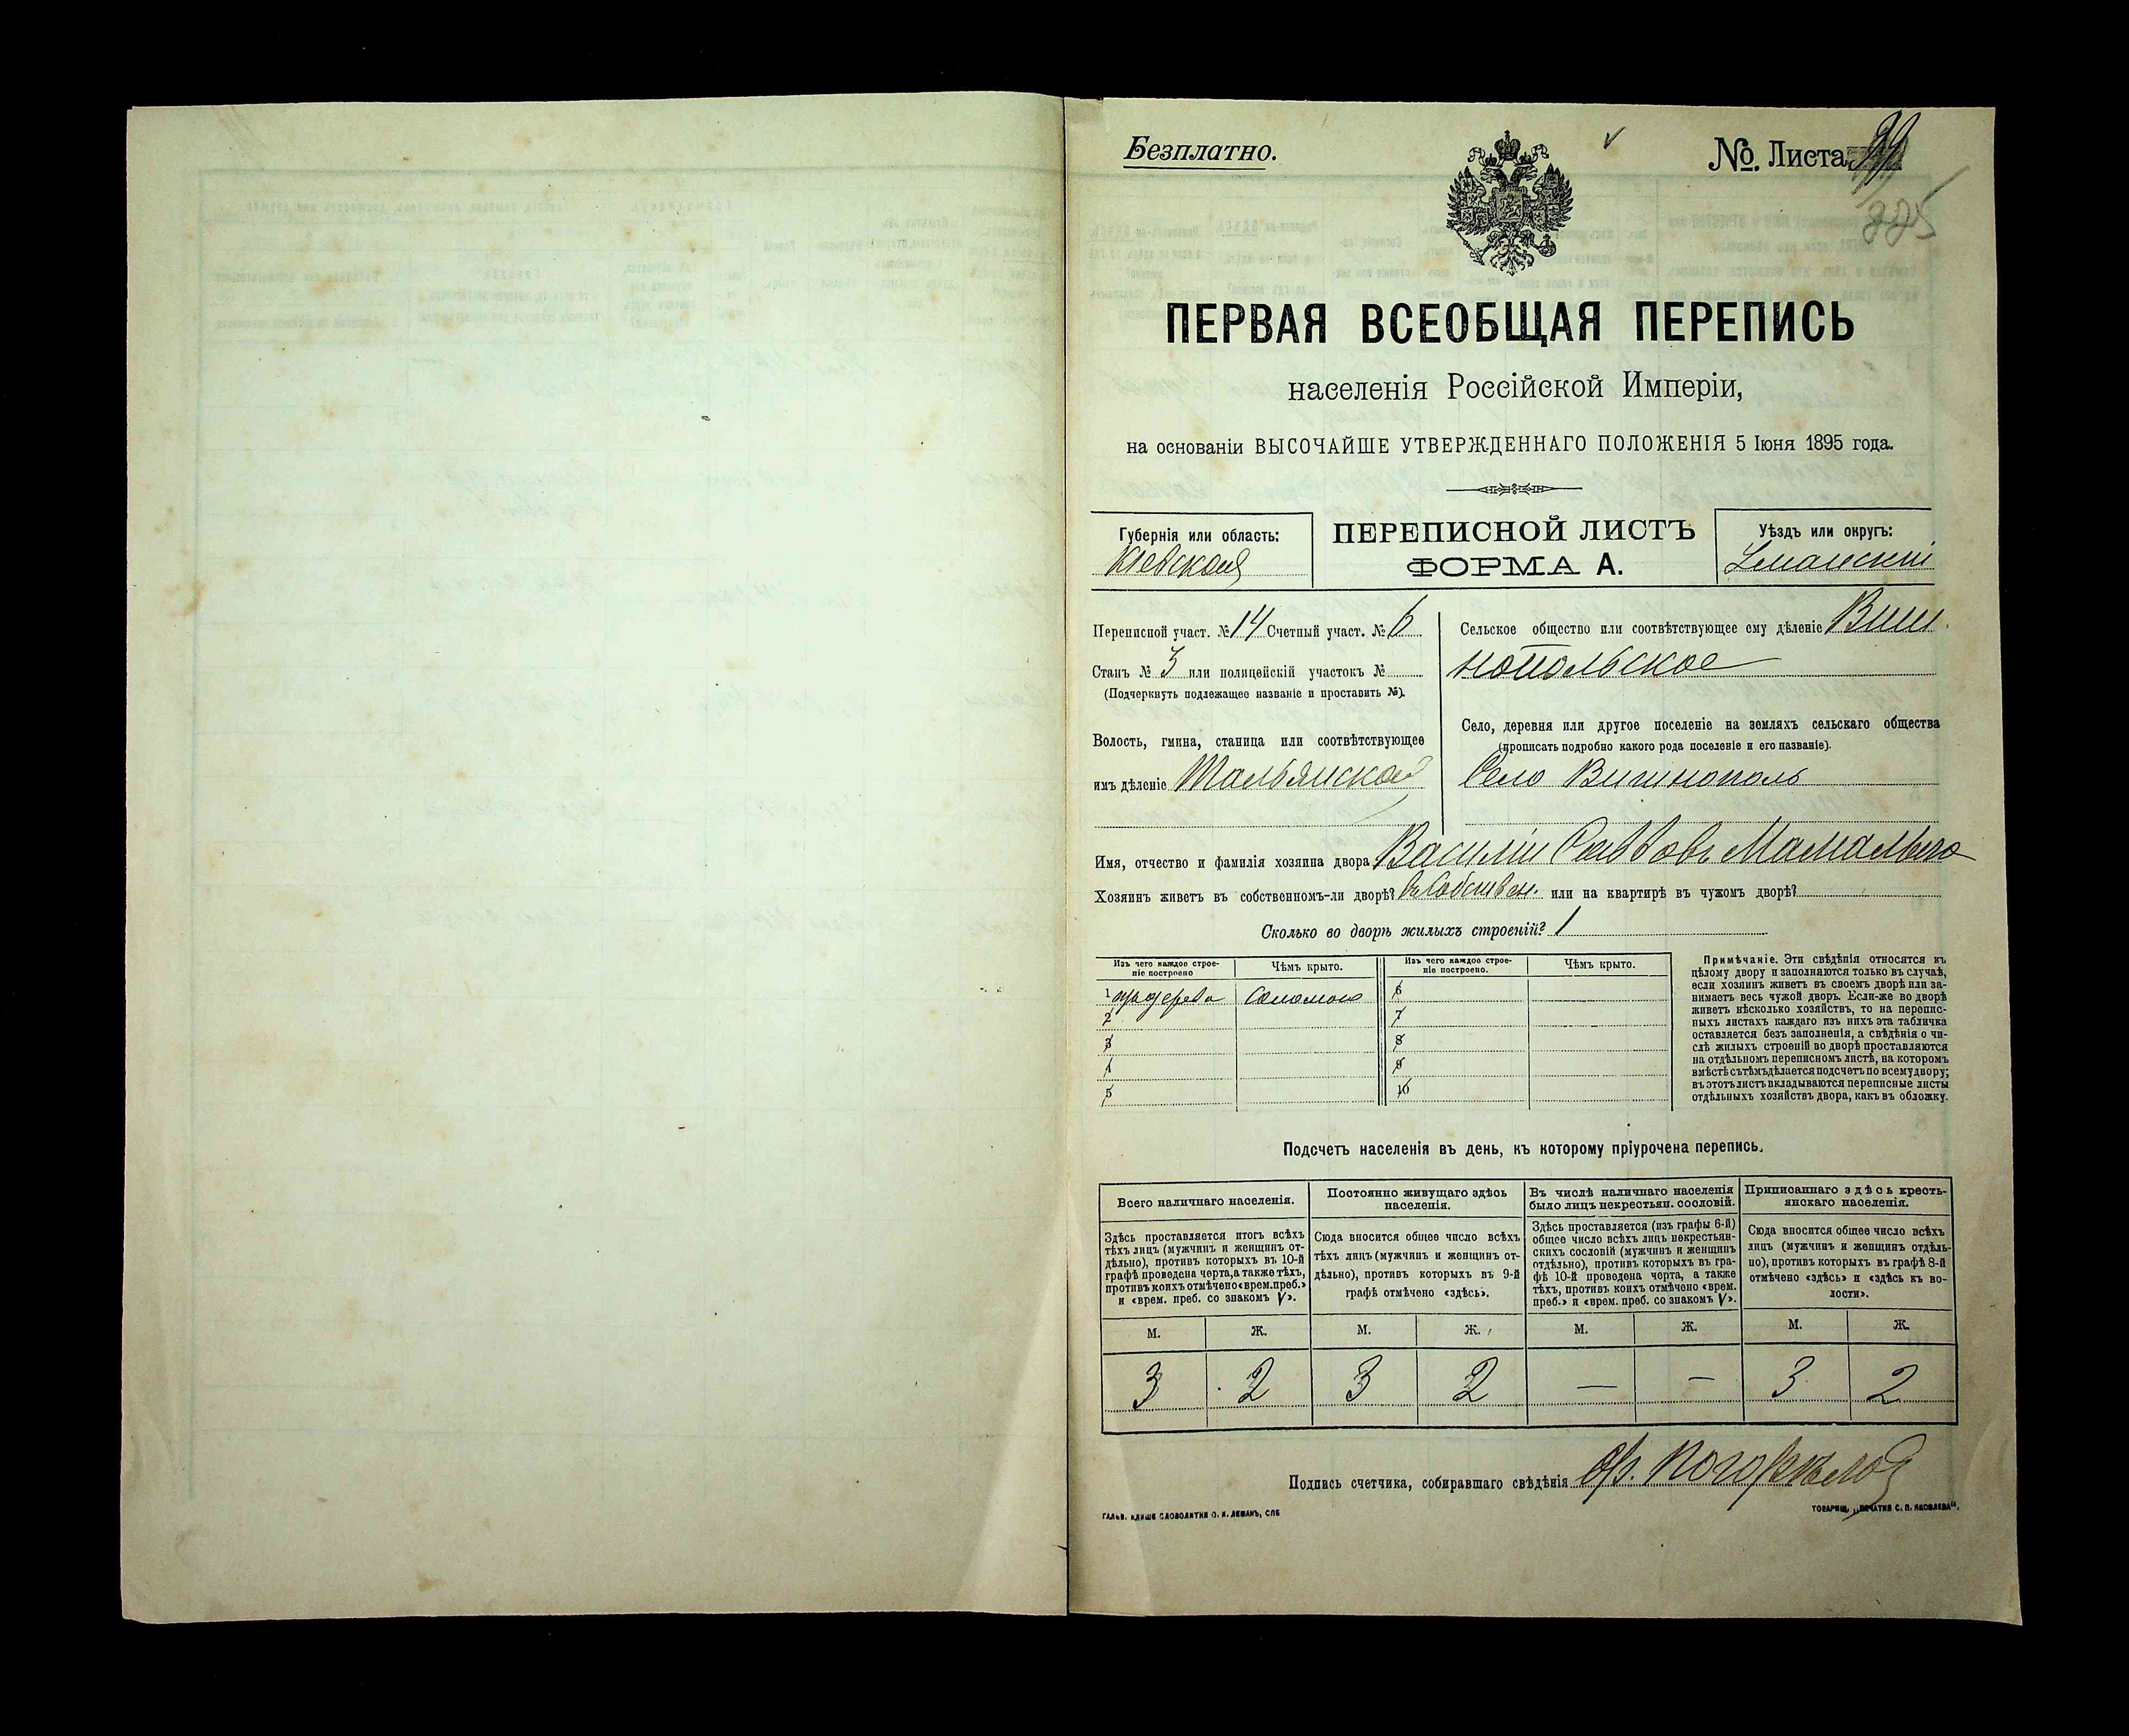 Безплатно.
№. Листа
225
ПЕРВАЯ ВСЕОБЩАЯ ПЕРЕПИСЬ
населенія Россійской Имперіи,
на основаніи ВЫСОЧАЙШЕ УТВЕРЖДЕННАГО ПОЛОЖЕНІЯ 5 Іюня 1895 года.
Губернія или область:
Кіевская
ПЕРЕПИСНОЙ ЛИСТЪ
ФОРМА А.
Уѣздъ или округъ:
Уманскій
Переписной участ. № 14 Счетный участ. № 6
Станъ № 3 или полицейскій участокъ №
(Подчеркнуть подлежащее названіе и проставить №).
Волость, гмина, станица или соотвѣтствующее
имъ дѣленіе Тальянская
Сельское общество или соотвѣтствующее ему дѣленіе Виш
нопольское
Село, деревня или другое поселеніе на земляхъ сельскаго общества
(прописать подробно какого рода поселеніе и его названіе).
Село Вишнополь
Имя, отчество и фамилія хозяина двора Василій
Хозяинъ живетъ въ собственномъ-ли дворѣ? въ собствен. или на квартирѣ въ чужомъ дворѣ?
Сколько во дворѣ жилыхъ строеній? 1
Изъ чего каждое строе-
ніе построено
Чѣмъ крыто.
Изъ чего каждое строе-
ніе построено.
Чѣмъ крыто.
1 изъ дерева Соломою 6
2 7
3 8
4 9
5 10
Примѣчаніе. Эти свѣдѣнія относятся къ
цѣлому двору и заполняются только въ случаѣ,
если хозяинъ живетъ въ своемъ дворѣ или за-
нимаетъ весь чужой дворъ. Если-же во дворѣ
живетъ нѣсколько хозяйствъ, то на перепис-
ныхъ листахъ каждаго изъ нихъ эта табличка
оставляется безъ заполненія, а свѣдѣнія о чи-
слѣ жилыхъ строеній во дворѣ проставляются
на отдѣльномъ переписномъ листѣ, на которомъ
вмѣстѣ съ тѣмъ дѣлается подсчетъ по всему двору;
въ этотъ листъ вкладываются переписные листы
отдѣльныхъ хозяйствъ двора, какъ въ обложку.
Подсчетъ населенія въ день, къ которому пріурочена перепись.
Всего наличнаго населенія.
Здѣсь проставляется итогъ всѣхъ
тѣхъ лицъ (мужчинъ и женщинъ от-
дѣльно), противъ которыхъ въ 10-й
графѣ проведена черта, а также тѣхъ,
противъ коихъ отмѣчено «врем. преб.»
и «врем. преб. со знакомъ V».
Постоянно живущаго здѣсь
населенія.
Сюда вносится общее число всѣхъ
тѣхъ лицъ (мужчинъ и женщинъ от-
дѣльно), противъ которыхъ въ 9-й
графѣ отмѣчено «здѣсь».
Въ числѣ наличнаго населенія
было лицъ некрестьян. сословій.
Здѣсь проставляется (изъ графы 6-й)
общее число всѣхъ лицъ некрестьян-
скихъ сословій (мужчинъ и женщинъ
отдѣльно), противъ которыхъ въ гра-
фѣ 10-й проведена черта, а также
тѣхъ, противъ коихъ отмѣчено «врем.
преб.» и «врем. преб. со знакомъ V».
Приписаннаго здѣсь кресть-
янскаго населенія.
Сюда вносится общее число всѣхъ
лицъ (мужчинъ и женщинъ отдѣль-
но), противъ которыхъ въ графѣ 8-й
отмѣчено «здѣсь» и «здѣсь къ во-
лости».
М. Ж. М. Ж. М. Ж. М. Ж.
3 2 3 2 — — 3 2
Подпись счетчика, собиравшаго свѣдѣнія
ГАЛЬВ. КЛИШЕ СЛОВОЛИТНИ О. И. ЛЕМАНЪ, СПБ
ТОВАРИЩ. „ПЕЧАТНЯ С. П. ЯКОВЛЕВА“.